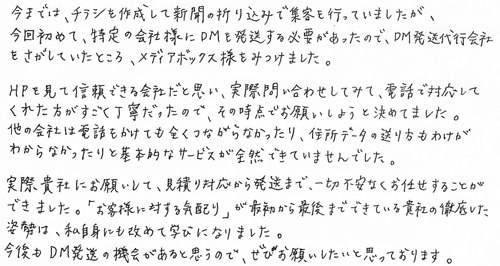 今までは、チラシを作成して新聞の折り込みで集客を行っていましたが、
今回初めて、特定の会社様にDMを発送する必要があったので、DM発送代行会社
をさがしていたところ、メディアボックス様をみつけました。
HPを見て信頼できる会社だと思い、実際問い合わせしてみて、電話で対応して
くれた方がすごく丁寧だったので、その時点でお願いしようと決めてました。
他の会社は電話をかけても全くつながらなかったり、住所データの送り方もわけが
わからなかったりと基本的なサービスが全然できていませんでした。
実際貴社にお願いして、見積り対応から発送まで、一切不安なくお任せすることが
できました。「お客様に対する気配り」が最初から最後までできている貴社の徹底した
姿勢は、私自身にも改めて学びになりました。
今後もDM発送の機会があると思うので、ぜひお願いしたいと思っております。